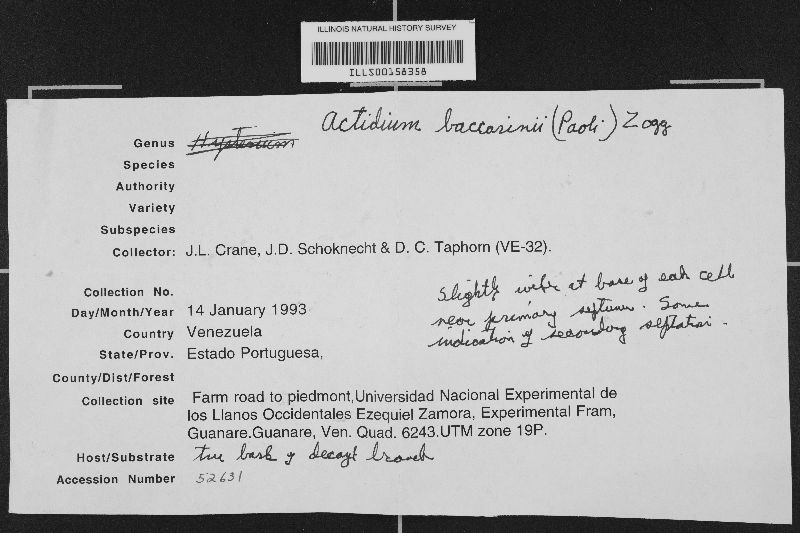 ILLINOIS NATURAL HISTORY SURVEY
ILLS00158358
Actidium baccarinii (Paoli) Zogg
Genus Hysterium
Species
Authority
Variety
Subspecies
Collector: J.L. Crane, J.D. Schoknecht & D. C. Taphorn (VE-32).
Collection No.
Slightly wider at base of each cell
near primary septum. Some
indication of secondary septation.
Day/Month/Year 14 January 1993
Country Venezuela
State/Prov. Estado Portuguesa,
County/Dist/Forest
Collection site Farm road to piedmont,Universidad Nacional Experimental de
los Llanos Occidentales Ezequiel Zamora, Experimental Fram,
Guanare.Guanare, Ven. Quad. 6243.UTM zone 19P.
Host/Substrate bark of branch
Accession Number 52631